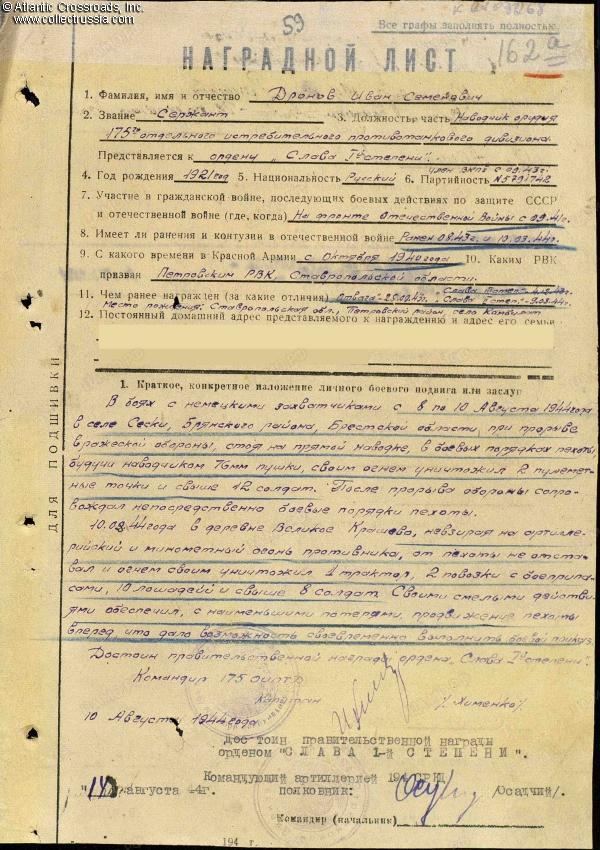 © Atlantic Crossroads, Inc.
www.collectrussia.com
59
Все графы заполнять полностью
162 а
НАГРАДНОЙ ЛИСТ
1. Фамилия, имя и отчество Дронов Иван Семенович
2. Звание Сержант 3. Должность, часть Наводчик орудия
175го отдельного истребительного противотанкового дивизиона.
Представляется к ордену „Слава Iй степени".
член ВКПб с 09.43г.
4. Год рождения 1921 год 5. Национальность Русский 6. Партийность № 5791742
7. Участие в гражданской войне, последующих боевых действиях по защите СССР
и отечественной войне (где, когда) На фронте Отечественной войны с 09.41г.
8. Имеет ли ранения и контузии в отечественной войне Ранен 08.43г. и 10.03.44г.
9. С какого времени в Красной Армии с Октября 1940 года 10. Каким РВК
призван Петровским РВК, Ставропольской области.
11. Чем ранее награжден (за какие отличия) „Отвага"
Место рождения: Ставропольская обл., Петровский район, село
12. Постоянный домашний адрес представляемого к награждению и адрес его семьи
ДЛЯ ПОДШИВКИ
1. Краткое, конкретное изложение личного боевого подвига или заслуг
В боях с немецкими захватчиками с 8 по 10 Августа 1944 года
в селе Сески, района, Брестской области, при прорыве
вражеской обороны, стоя на прямой наводке, в боевых порядках пехоты,
будучи наводчиком 76мм пушки, своим огнем уничтожил 2 пулемет-
ные точки и свыше 12 солдат. После прорыва обороны сопро-
вождал непосредственно боевые порядки пехоты.
10.08.44 года в деревне Великое невзирая на артилле-
рийский и минометный огонь противника, от пехоты не отста-
вал и огнем своим уничтожил 1 трактор, 2 повозки с боеприпа-
сами, 10 лошадей и свыше 8 солдат. Своими смелыми действи-
ями обеспечил, с наименьшими потерями, продвижение пехоты
вперед, что дало возможность своевременно выполнить боевой приказ.
Достоин правительственной награды ордена „Слава Iй степени".
Командир 175 ОИПТД
Капитан /Хименко/
10 Августа 1944 года
Достоин правительственной награды
орденом "СЛАВА 1-й СТЕПЕНИ".
Командующий артиллерией
"14" августа 44г. полковник: /Осадчий/.
Командир (начальник)
194 г.